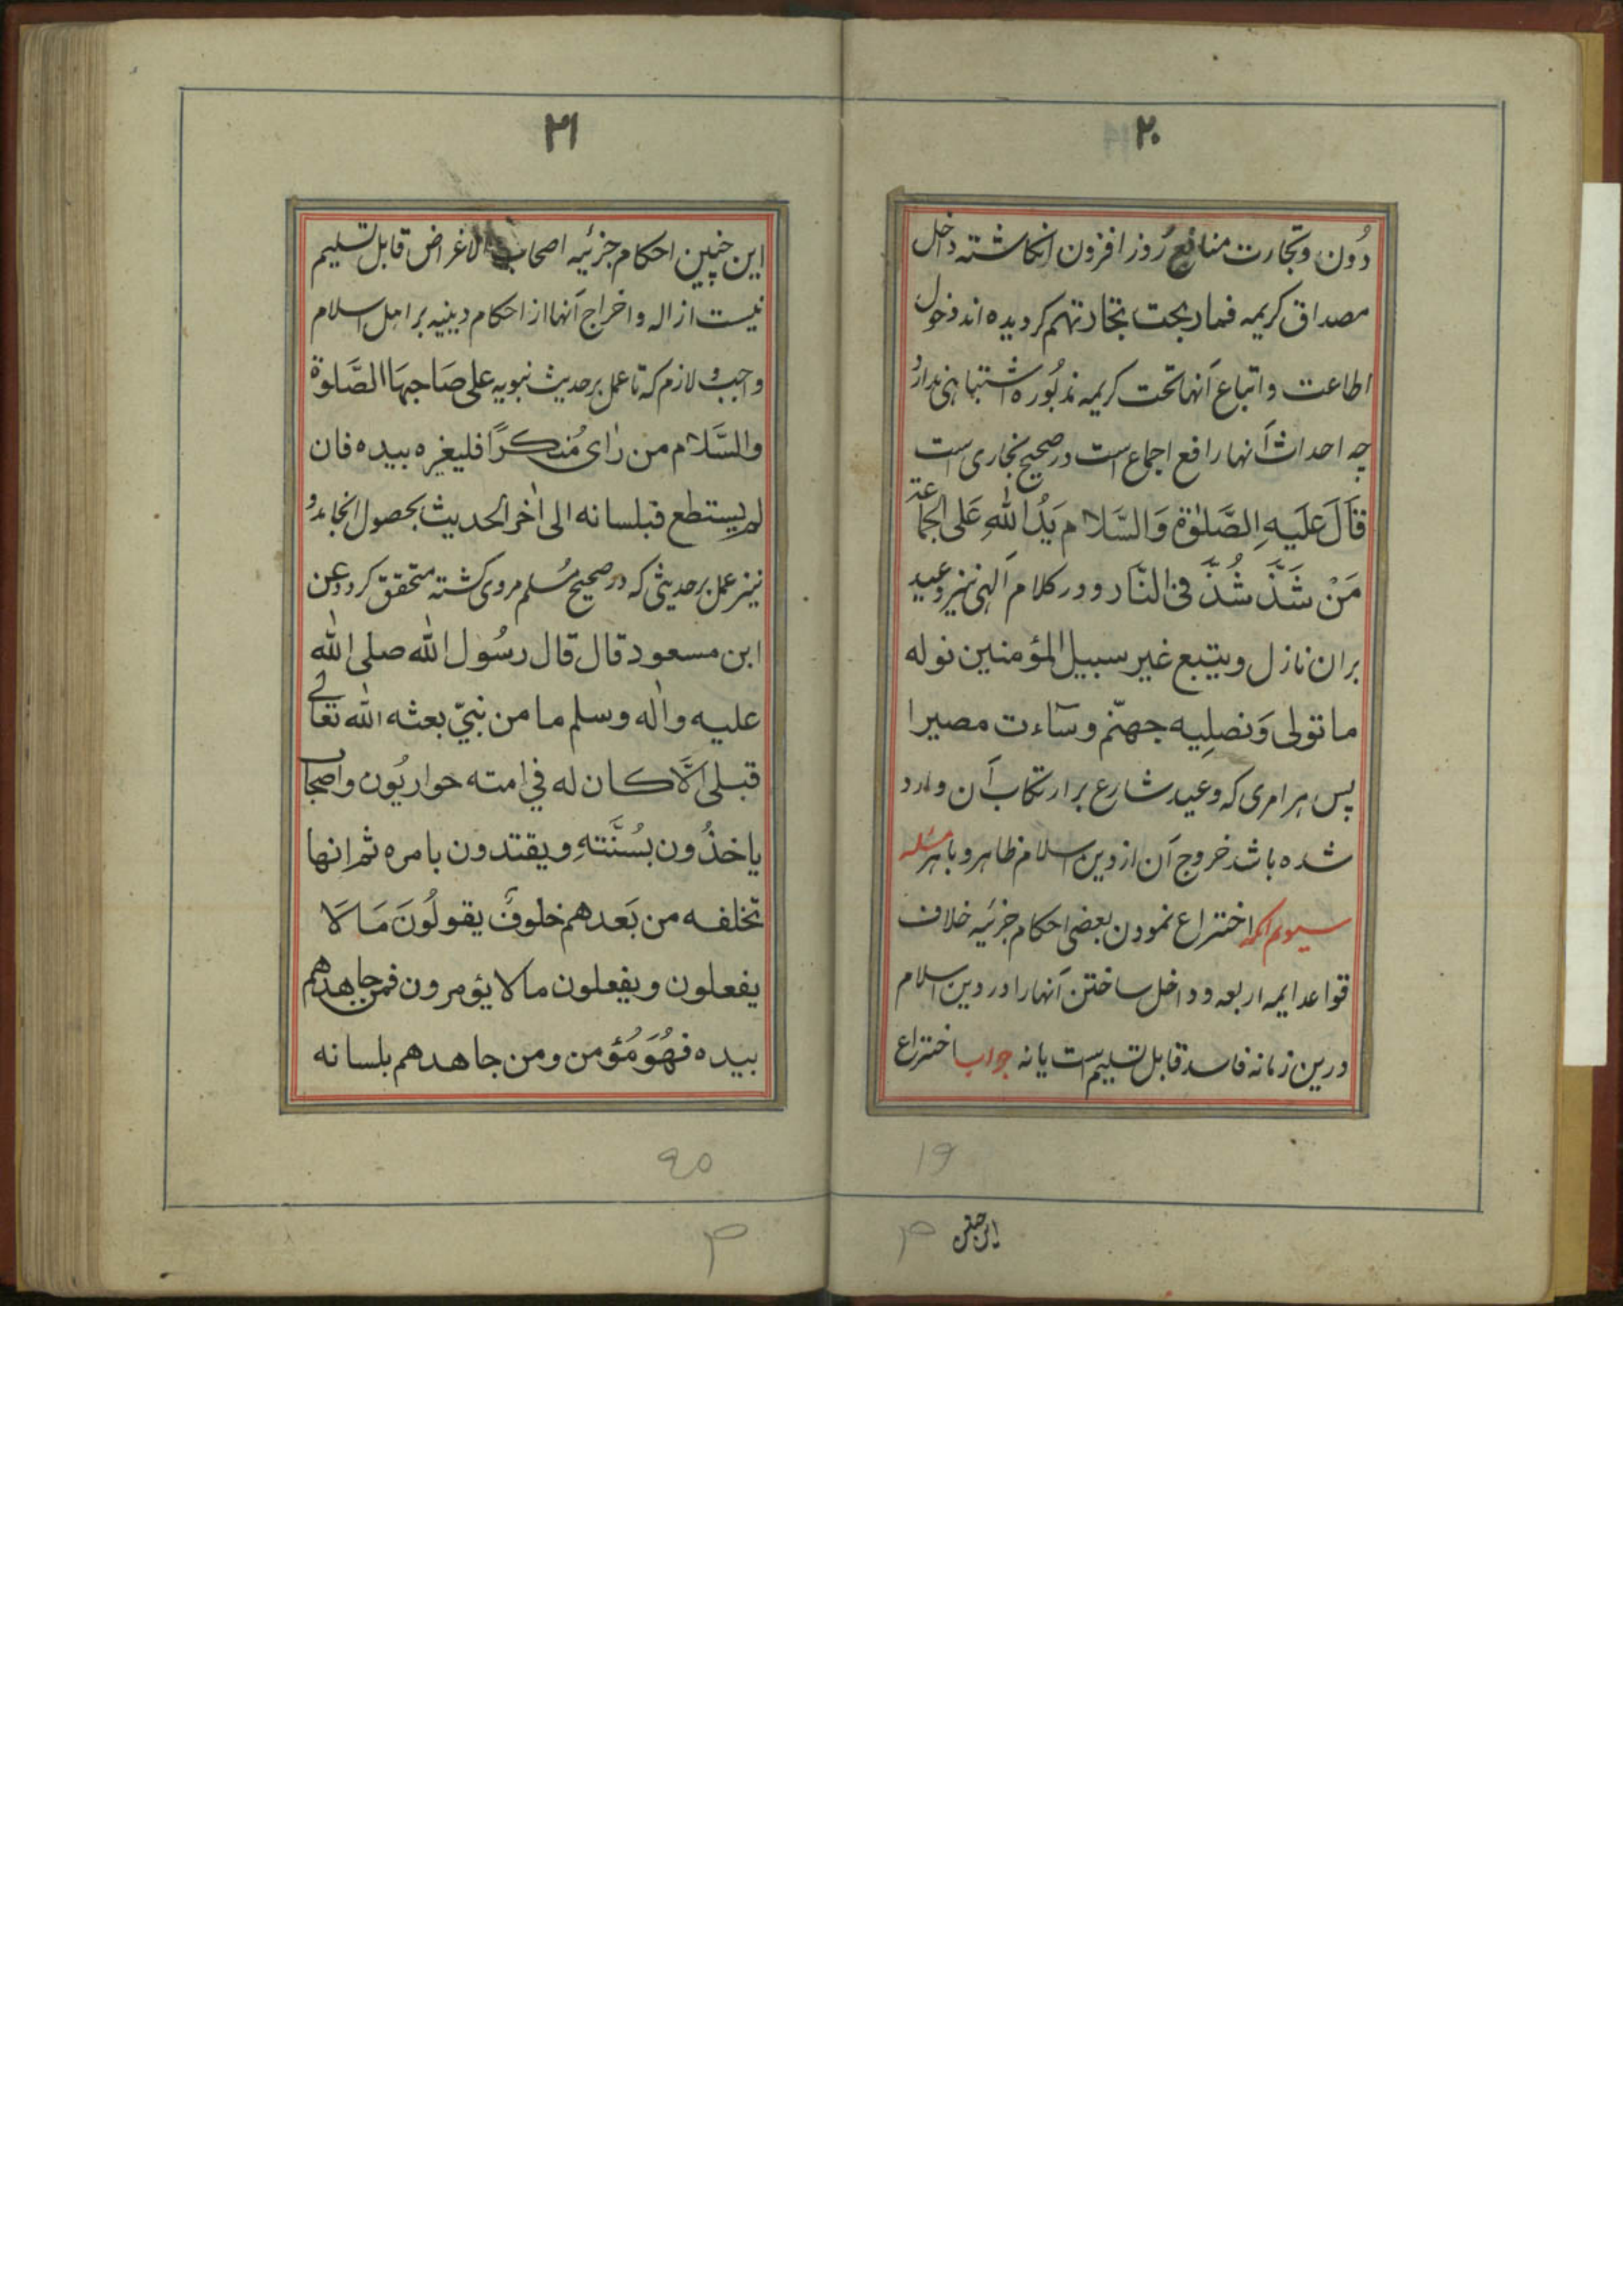 ۲۰
دُون و تجارت منافع روز افزون انکاشته داخل
مصداق کریمه فماربحت تجارتهم کردیده اند دخول
اطاعت و اتباع آنها تحت کریمه مذبُوره اشتباهی ندارد
چه احداث آنها رافع اجماع است در صحیح بخاری است
قَالَ عَلَيهِ الصَّلٰوة وَالسَّلام يَدُ اللّٰهِ عَلَى الجماعة
مَنْ شَذَّ شُذَّ فى النّار و در کلام الهی نیز وعید
بران نازل ويتبع غير سبيل المؤمنين نوله
ما تولى وَنصلِيه جهنّم وساءت مصيرا
پس هر امری که وعید شارع بر ارتکاب آن وارد
شده باشد خروج آن از دین اسلام ظاهر و باهر مسئله
سیوم آنکه اختراع نمودن بعضی احکام جزئیه خلاف
قواعد ایمه اربعه و داخل ساختن آنها را در دین اسلام
درین زمانه فاسد قابل تسلیم است یا نه جواب اختراع
19
این چنین
۲۱
این چنین احکام جزئیه اصحاب الاغراض قابل تسلیم
نیست ازاله و اخراج آنها از احکام دینیه بر اهل اسلام
واجب و لازم که تا عمل بر حدیث نبویه على صَاحبهَا الصَّلوٰة
والسَّلام من راٰى مُنكرًا فليغيره بيده فان
لم يستطع فبلسانه الى اٰخر الحديث بحصول انجامد و
نیز عمل بر حدیثی که در صحیح مُسلم مروی کشته متحقق کردد عن
ابن مسعود قال قال رسُول اللّٰه صلى اللّٰه
عليه واٰله وسلم ما من نبيّ بعثه اللّٰه تعالٰى
قبلى الَّا كان له في امته حواريُون واصحاب
ياخذُون بسُنَّتهِ ويقتدون بامره ثم انها
تخلفه من بَعدهم خلوفٌ يقولُونَ مَا لَا
يفعلون ويفعلون ما لا يؤمرون فمن جاهدهم
بيده فهُوَ مُؤمن ومن جاهدهم بلسانه